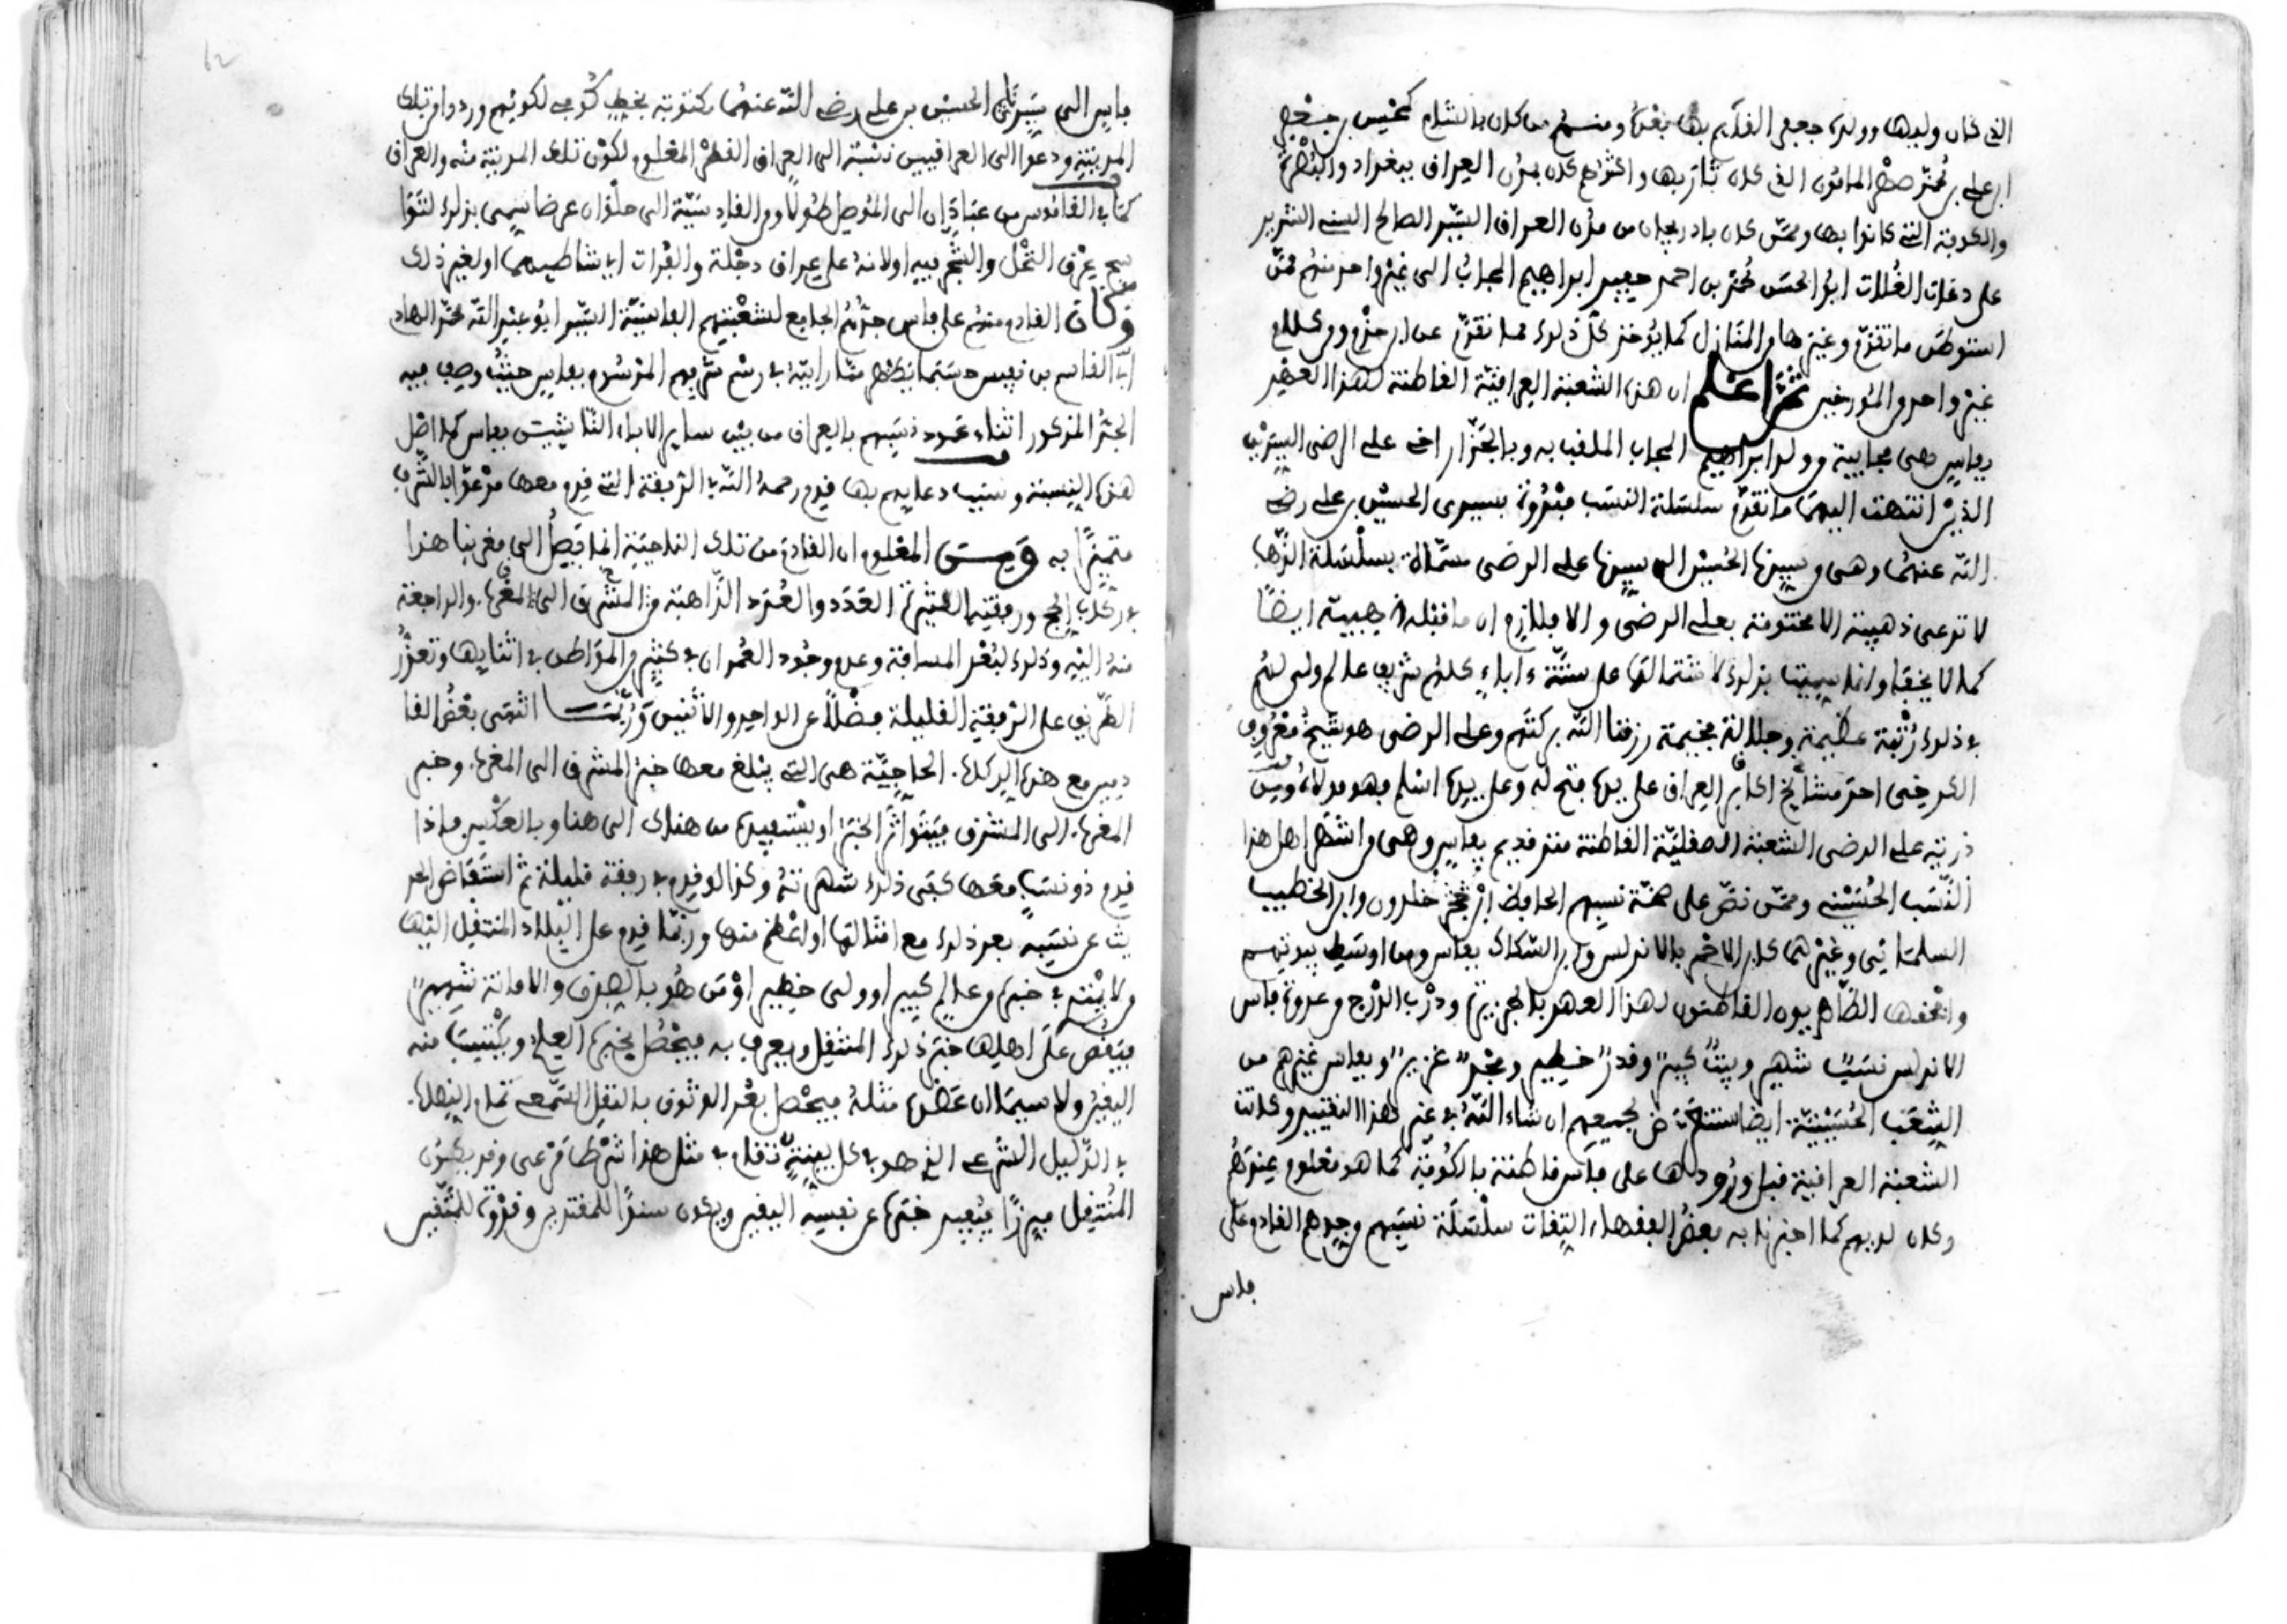 الذي كان وليها وولده جعفر القايم بها بعده ومنهم من كان بالشام كمحيس بن جعفر
ابن علي بن محمد صهر المامون الذي كان ثار بها واكثرهم كان بمدن العراق ببغداد والبصرة
والكوفة التي كانوا بها وممن كان باذربيجان من مدن العراق السيد الصالح السني
على الغلات ابو الحسن محمد بن احمد حفيد ابراهيم المجاب الى غير واحد منهم ممن
استوطن ما تقدم وغيرها من المنازل كما يؤخذ كل ذلك مما تقدم عن ابن حزم ومن كلام
غير واحد من المؤرخين ثم اعلم ان هذه الشعبة العراقية القاطنة لهذا العهد
بفاس هي مجابية من ولد ابراهيم المجاب الملقب به وبالجزار اخي علي الرضى السيدين
الذين انتهت اليهما ما تقدم سلسلة النسب مبدوة بسيدي الحسين بن علي رضي
الله عنهما وهي من سيدنا الحسين الى سيدنا علي الرضى مسماة بسلسلة الذهب
لا تدعى ذهبية الا مختومة بعلي الرضى والا فلازم ان ما قبله ذهبية ايضا
كما لا يخفى وانما سميت بذلك لاشتمالها على ستة ءاباء كلهم شريف عالم ولي لهم
في ذلك رتبة عظيمة وجلالة فخيمة رزقنا الله بركتهم وعلي الرضى هو شيخ معروف
الكرخي احد مشائخ اكابر العراق على يده فتح له وعلى يده اسلم فهو مولاه ومن
ذرية علي الرضى الشعبة الصقلية القاطنة منذ قديم بفاس وهي من اشهر اهل هذا
النسب الحسيني وممن نص على صحة نسبهم الحافظ ابن خلدون وابن الخطيب
السلماني وغيرهما كابن الاحمر بالاندلس وابن السكاك بفاس ومن اوسط بيوتهم
والحفها الطاهريون القاطنون لهذا العهد بالجزيرة ودرب الدرج من عدوة فاس
الاندلس نسب شهير وبيت كبير وقدر خطير ومجد غزير وبفاس غيرهم من
الشعب الحسينية ايضا سنتعرض لجميعهم ان شاء الله في غير هذا التقييد وكانت
الشعبة العراقية قبل ورودها على فاس قاطنة بالكوفة كما هو معلوم عندهم
وكان لديهم كما اخبرنا به بعض الفقهاء الثقات سلسلة نسبهم من جدهم القادم على
فاس
62
فاس الى سيدنا الحسين بن علي رضي الله عنهما مكتوبة بخط كوفي لكونهم وردوا من تلك
المدينة ودعوا الى العراقيين نسبة الى العراق القطر المعلوم لكون تلك المدينة منه والعراق
كما في القاموس من عبادان الى الموصل طولا ومن القادسية الى حلوان عرضا سمي بذلك لتوا
شج عرق النخل والشجر فيه او لانه على عراق دجلة والفرات اي شاطيهما او لغير ذلك
وكان القادم منهم على فاس جدهم الجامع لشعبتهم الفاسية السيد ابو عبد الله محمد الهادي
ابن القاسم بن نفيس حسبما يظهر مما رايته في رسم شريهم الموسوم بفاس حيث وصف فيه
الجد المذكور اثناء عمود نسبهم بالعراق من بين ساير الاباء الثابت بفاس كما اصل
هذه النسبة وسبب دعايهم بها قدم رحمه الله في الرفقة التي قدم معها مدعوا بالشرف
متميزا به ومن المعلوم ان القادم من تلك الناحية انما يصل الى مغربنا هذا
في ركب الحج ورفقته الكثيرة العدد والعدد الذاهبة من المشرق الى المغرب والراجعة
منه اليه وذلك لبعد المسافة وعدم وجود العمران في كثير من المواطن في اثنايها وتعذر
الطريق على الرفقة القليلة فضلا عن الواحد والاثنين وربما انتهى بعض القا
دمين مع هذه الركاب الحاجية هي التي يبلغ معها خبر المشرق الى المغرب وخبر
المغرب الى المشرق فيتواتر الخبر او يستفيض من هناك الى هنا وبالعكس فاذا
قدم ذو نسب معها كفى ذلك شهرته وكذا لو قدم في رفقة قليلة ثم استفاض الحد
يث عن نسبه بعد ذلك مع امثالها او اعظم منها وربما قدم على البلاد المنتقل اليها
من لا يتهم في خبره من عالم كبير او ولي خطير او من هو بالصدق والامانة شهير
فيقص على اهلها خبر ذلك المنتقل ويعرف به فيحصل بخبره العلم ويكتسب منه
اليقين ولا سيما ان عضده مثله فيحصل بعد الوثوق بالنقل السمعي تمام النصاب
في الدليل الشرعي الذي هو في كل بينة تقام في مثل هذا شرطا مرعي وقد يكون
المنتقل مبرزا يفيد خبره عن نفسه اليقين ويكون سندا للمقتدين وقدوة للمتقين